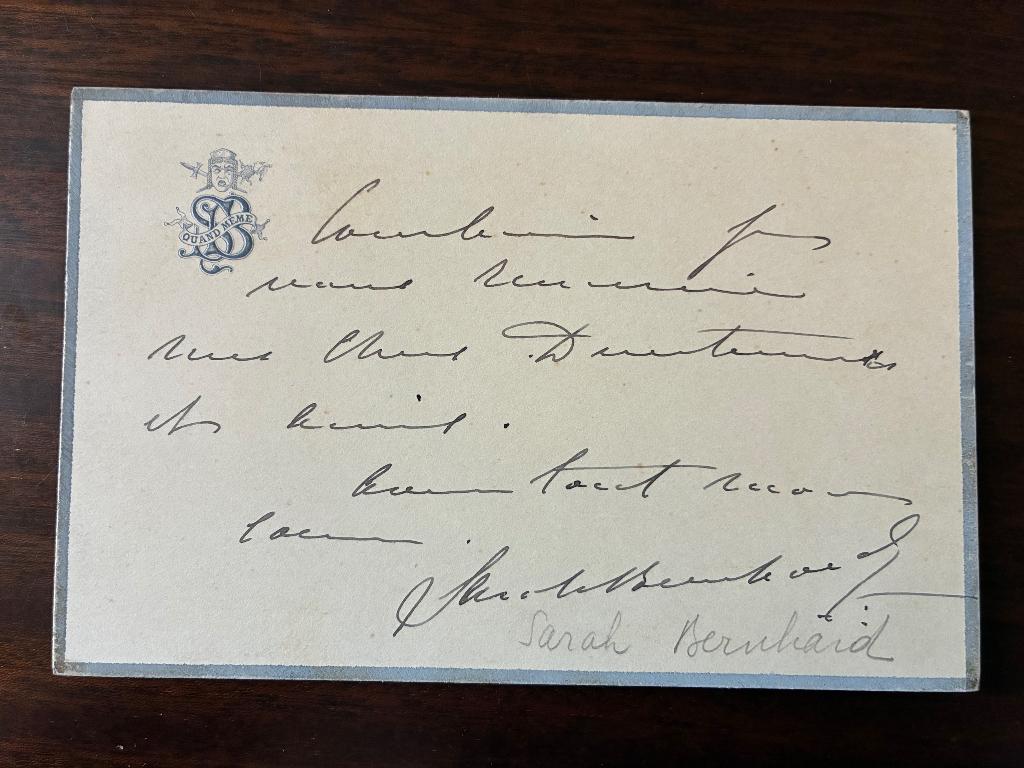 QUAND MÊME
Combien je
vous remercie
mes chers Directeurs
et amis.
avec tout mon
coeur.
Sarah Bernhardt
Sarah Bernhaid